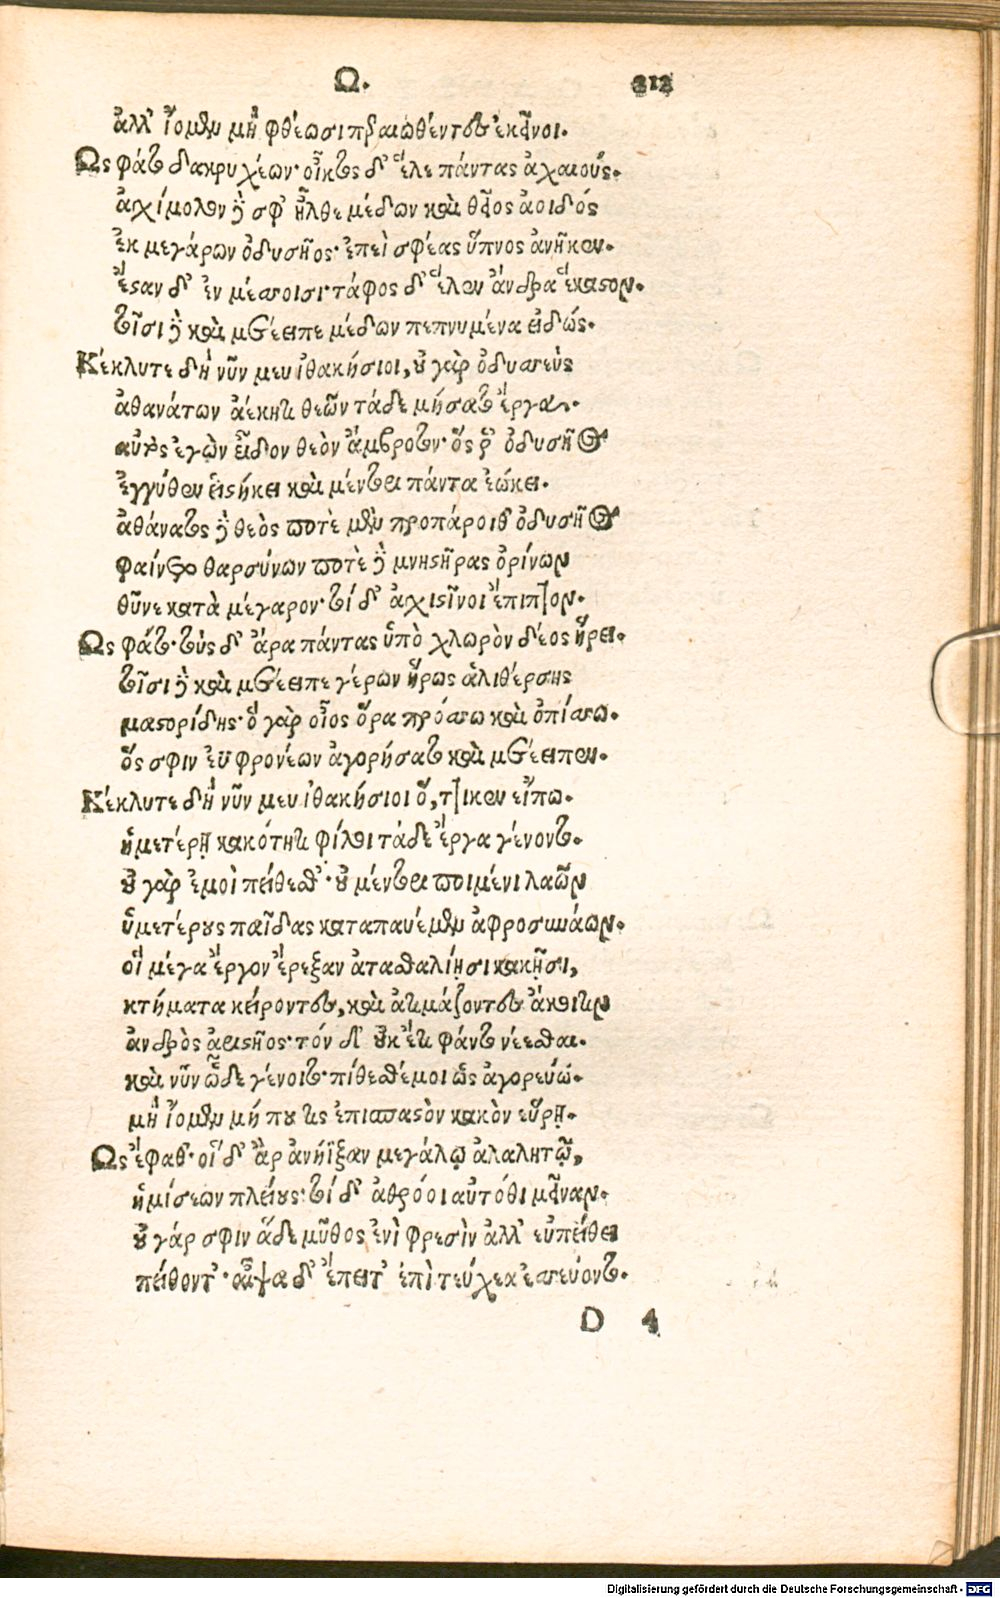 Ω. 212
ἀλλ' ἴομεν μὴ φθέωσι περαιωθέντες ἐκεῖνοι.
Ὣς φάτο δακρυχέων· οἶκτος δ' ἕλε πάντας ἀχαιούς.
ἀγχίμολον δέ σφ' ἦλθε μέδων καὶ θεῖος ἀοιδός
ἐκ μεγάρων ὀδυσῆος· ἐπεὶ σφέας ὕπνος ἀνῆκεν.
ἔσταν δ' ἐν μέσσοισι· τάφος δ' ἕλεν ἄνδρα ἕκαστον.
τοῖσι δὲ καὶ μετέειπε μέδων πεπνυμένα εἰδώς.
Κέκλυτε δὴ νῦν μευ ἰθακήσιοι, οὐ γὰρ ὀδυσσεὺς
ἀθανάτων ἀέκητι θεῶν τάδε μήσατο ἔργα.
αὐτὸς ἐγὼν εἶδον θεὸν ἄμβροτον· ὅς ῥ' ὀδυσῆϊ
ἐγγύθεν εἱστήκει καὶ μέντορι πάντα ἐώκει.
ἀθάνατος δὲ θεὸς ποτὲ μὲν προπάροιθ' ὀδυσῆος
φαίνετο θαρσύνων ποτὲ δὲ μνηστῆρας ὀρίνων
θῦνε κατὰ μέγαρον· τοὶ δ' ἀγχιστῖνοι ἔπιπτον.
Ὣς φάτο· τοὺς δ' ἄρα πάντας ὑπὸ χλωρὸν δέος ᾕρει.
τοῖσι δὲ καὶ μετέειπε γέρων ἥρως ἁλιθέρσης
μαστορίδης· ὃ γὰρ οἶος ὅρα πρόσσω καὶ ὀπίσσω.
ὅς σφιν ἐϋφρονέων ἀγορήσατο καὶ μετέειπεν.
Κέκλυτε δὴ νῦν μευ ἰθακήσιοι ὅ,ττι κεν εἴπω.
ἡμετέρῃ κακότητι φίλοι τάδε ἔργα γένοντο.
οὐ γὰρ ἐμοὶ πείθεσθ'· οὐ μέντορι ποιμένι λαῶν
ὑμετέρους παῖδας καταπαυέμεν ἀφροσυνάων.
οἳ μέγα ἔργον ἔρεξαν ἀτασθαλίῃσι κακῇσι,
κτήματα κείροντες, καὶ ἀτιμάζοντες ἄκοιτιν
ἀνδρὸς ἀριστῆος· τόν δ' οὐκ ἔτι φάντο νέεσθαι.
καὶ νῦν ὧδε γένοιτο· πίθεσθέ μοι ὡς ἀγορεύω.
μὴ ἴομεν μή που τις ἐπίσπαστὸν κακὸν εὕρῃ.
Ὣς ἔφαθ'· οἱ δ' ἂρ ἀνήϊξαν μεγάλῳ ἀλαλητῷ,
ἡμίσεων πλείους· τοὶ δ' ἀθρόοι αὐτόθι μεῖναν.
οὐ γάρ σφιν ἅδε μῦθος ἐνὶ φρεσὶν ἀλλ' εὐπείθει
πείθοντ'· αἶψα δ' ἔπειτ' ἐπὶ τεύχεα ἐσσεύοντο.
D 4
Digitalisierung gefördert durch die Deutsche Forschungsgemeinschaft - DFG